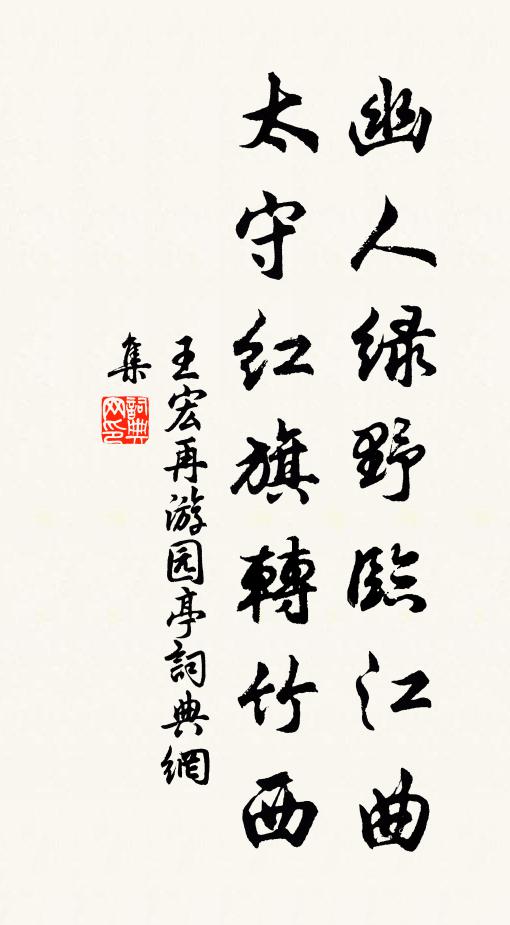 幽人绿野臨江曲
太守红旗轉竹西
王宏再游园亭詞典網
集
詞典网印